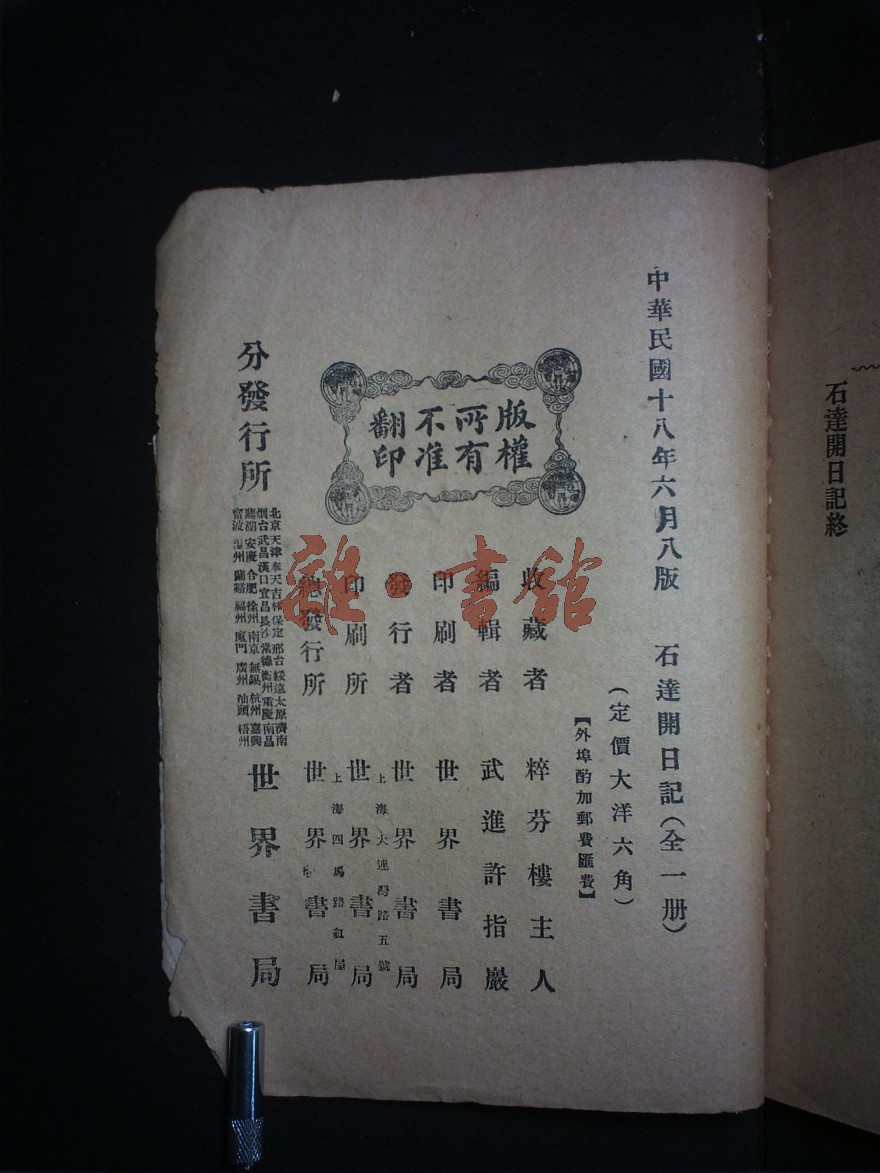 石達開日記終
中華民國十八年六月八版 石達開日記(全一册)
(定價大洋六角)
【外埠酌加郵費匯費】
版權
所有
不准
翻印
收藏者 粹芬樓主人
編輯者 武進許指嚴
印刷者 世界書局
發行者 世界書局
上海大連灣路五號
印刷所 世界書局
上海四馬路紅屋
總發行所 世界書局
分發行所
北京 天津 奉天 吉林 保定 邢台 綏遠 太原 濟南
烟台 武昌 漢口 宜昌 長沙 常德 衡州 重慶 南昌
蕪湖 安慶 合肥 徐州 南京 無錫 杭州 嘉興
甯波 溫州 蘭谿 福州 廈門 廣州 汕頭 梧州
世界書局
雜·書館